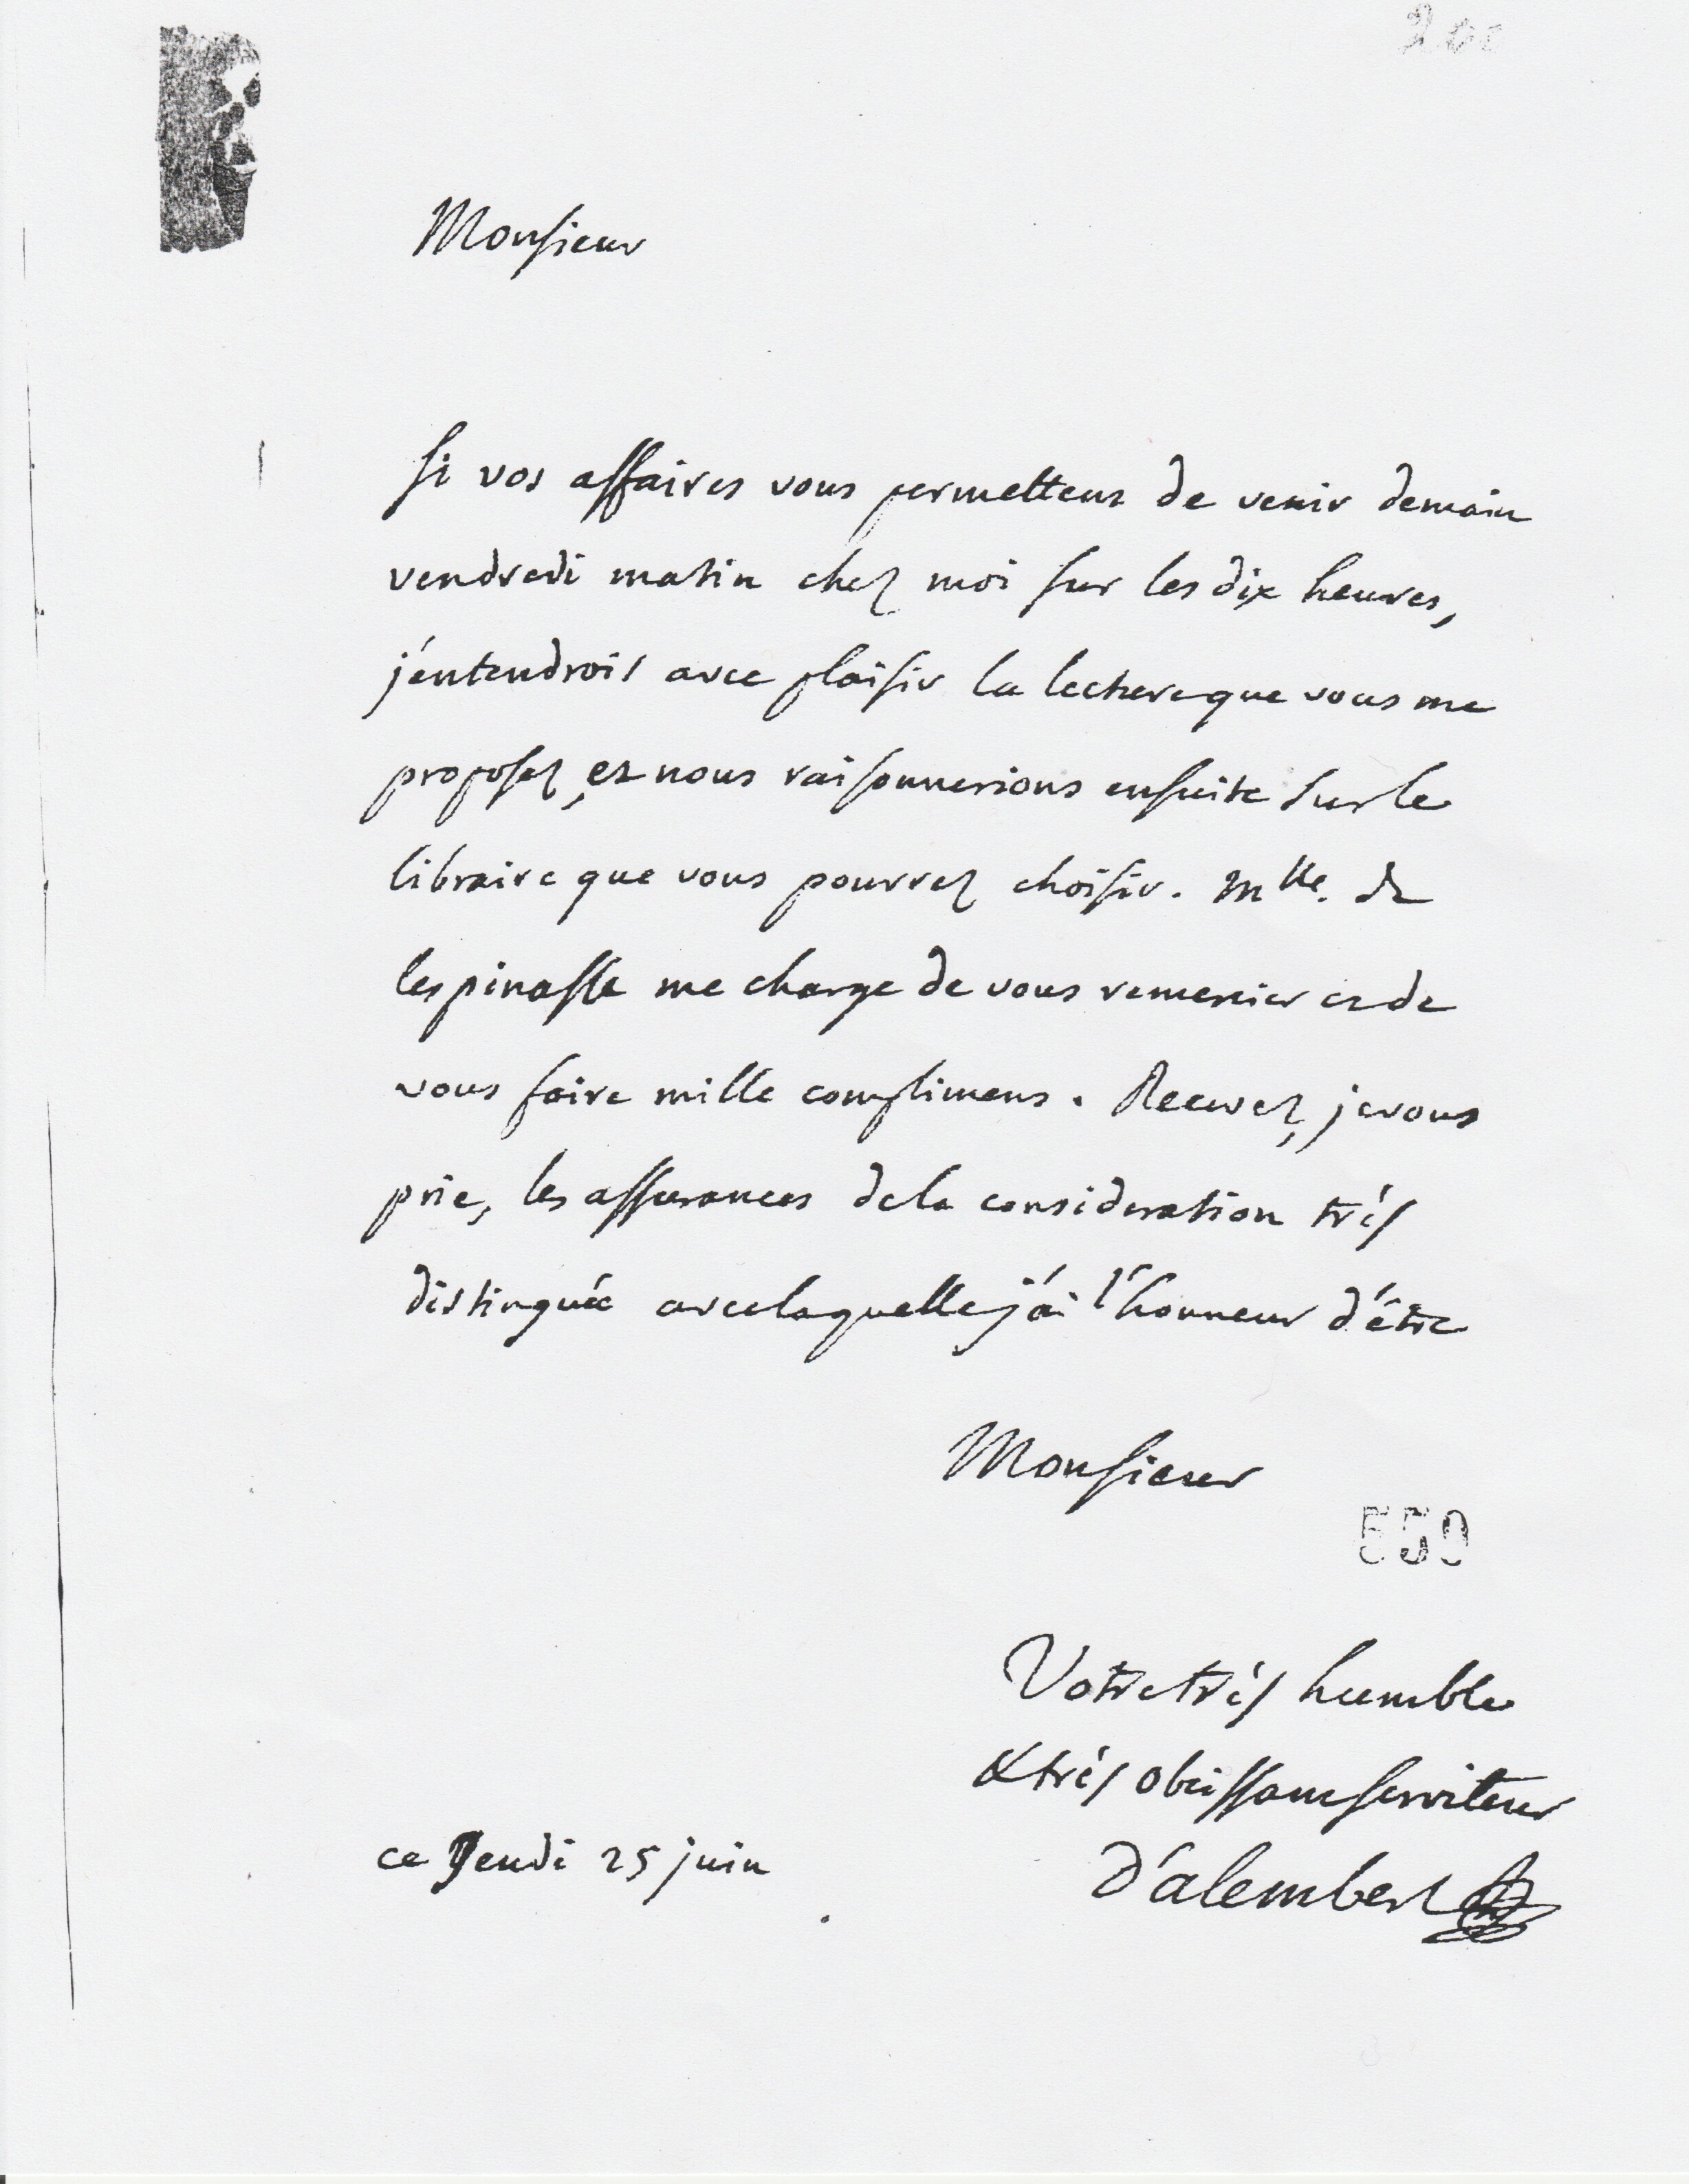 200
Monsieur
Si vos affaires vous permettent de venir demain
vendredi matin chez moi sur les dix heures,
j'entendrois avec plaisir la lecture que vous me
proposez, et nous raisonnerions ensuite sur le
libraire que vous pourrez choisir. Mlle. de
lespinasse me charge de vous remercier et de
vous faire mille complimens. Recevez, je vous
prie, les assurances de la consideration très
distinguée avec laquelle j'ai l'honneur d'être
Monsieur
559
Votre très humble
& très obeissant serviteur
ce Jeudi 25 juin
D'alembert